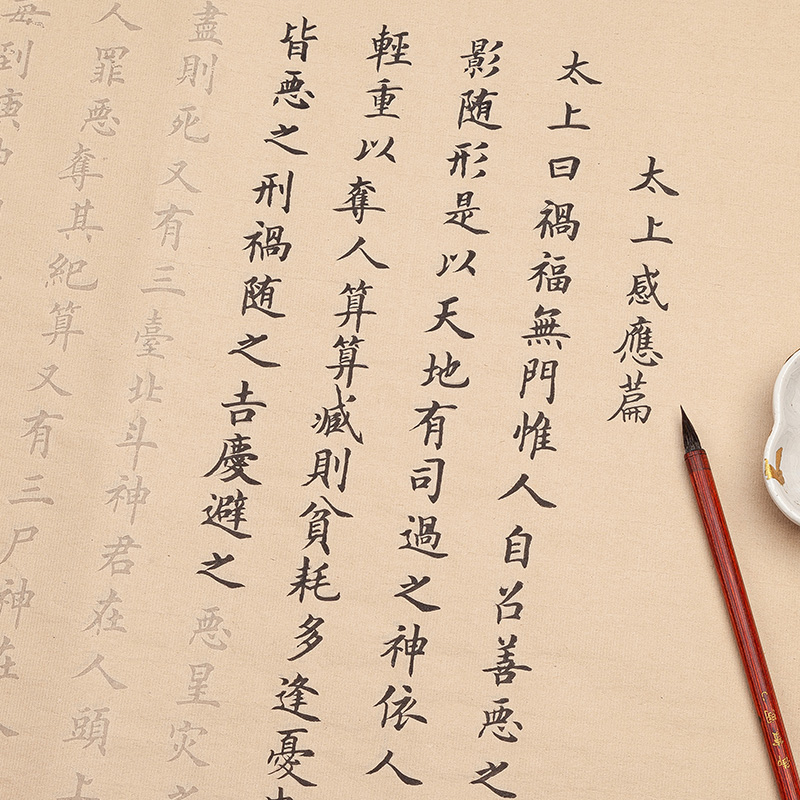 太上感應篇
太上曰禍福無門惟人自召善悪之
影随形是以天地有司過之神依人
輕重以奪人算算減則貧耗多逢憂
皆悪之刑禍随之吉慶避之悪星灾
盡則死又有三臺北斗神君在人頭上
人罪悪奪其紀算又有三尸神在人
每到庚申